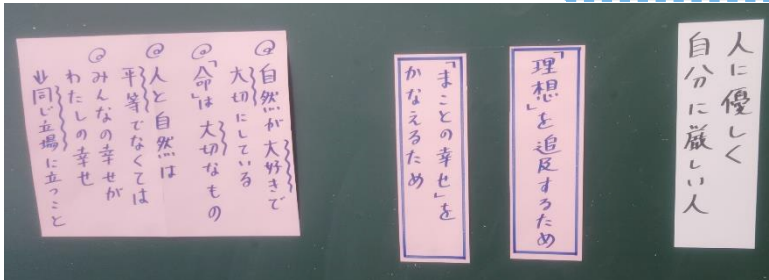 人に優しく
自分に厳しい人
「理想」を追及するため
「まことの幸せ」を
かなえるため
自然が大好きで
大切にしている
「命」は大切なもの
人と自然は
平等でなくては
みんなの幸せが
わたしの幸せ
⇓同じ立場に立つこと